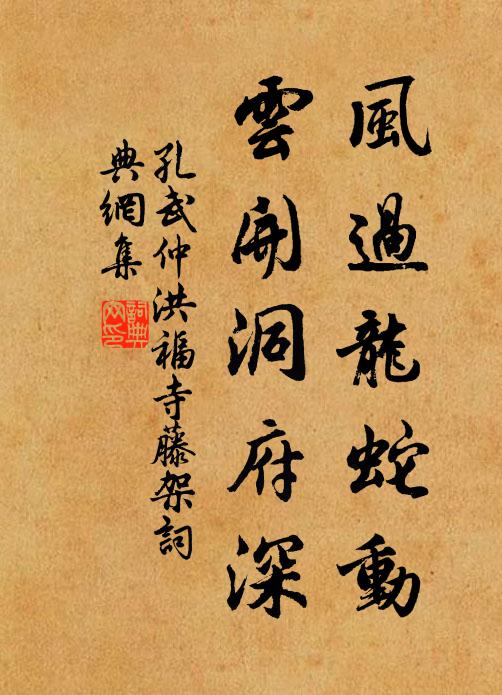 風過龍蛇動
雲開洞府深
孔武仲洪福寺藤架詞
典網集
詞典網印